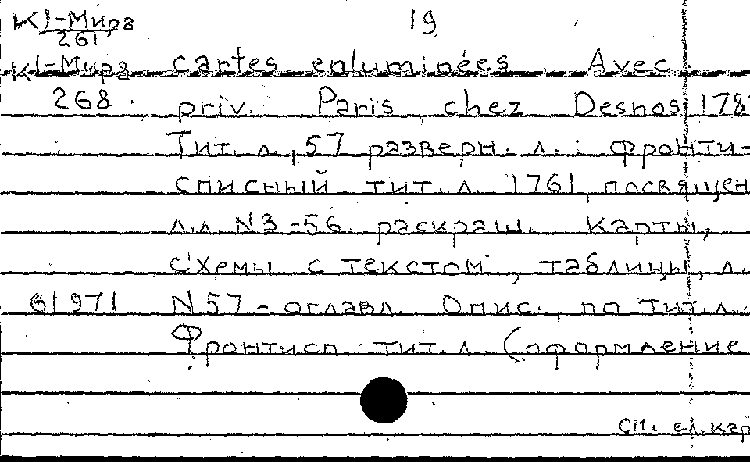 К1-Мира 19
261
К1-Мира cartes enluminées Avec
268. priv. Paris, chez Desnos, 178
Тит. л., 57 разверн. л.: фронти-
списный тит. л. 1761, посвящен
л.л N3-56 раскраш. Карты,
схемы с текстом, таблицы, л.
61971 N57 - оглавл. Опис. по тит. л.
Фронтисп. тит. л. (оформление
См. сл. кар